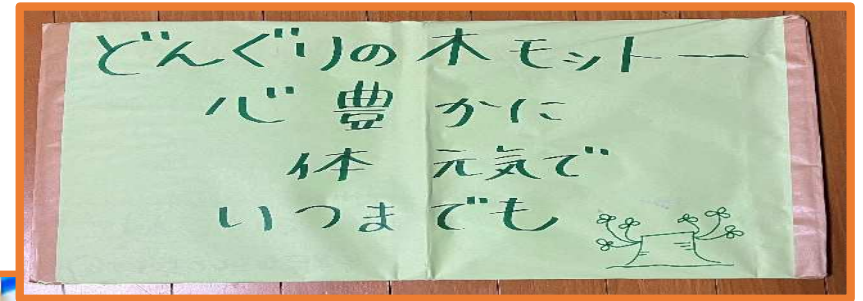 どんぐりの木モットー
心豊かに
体 元気で
いつまでも